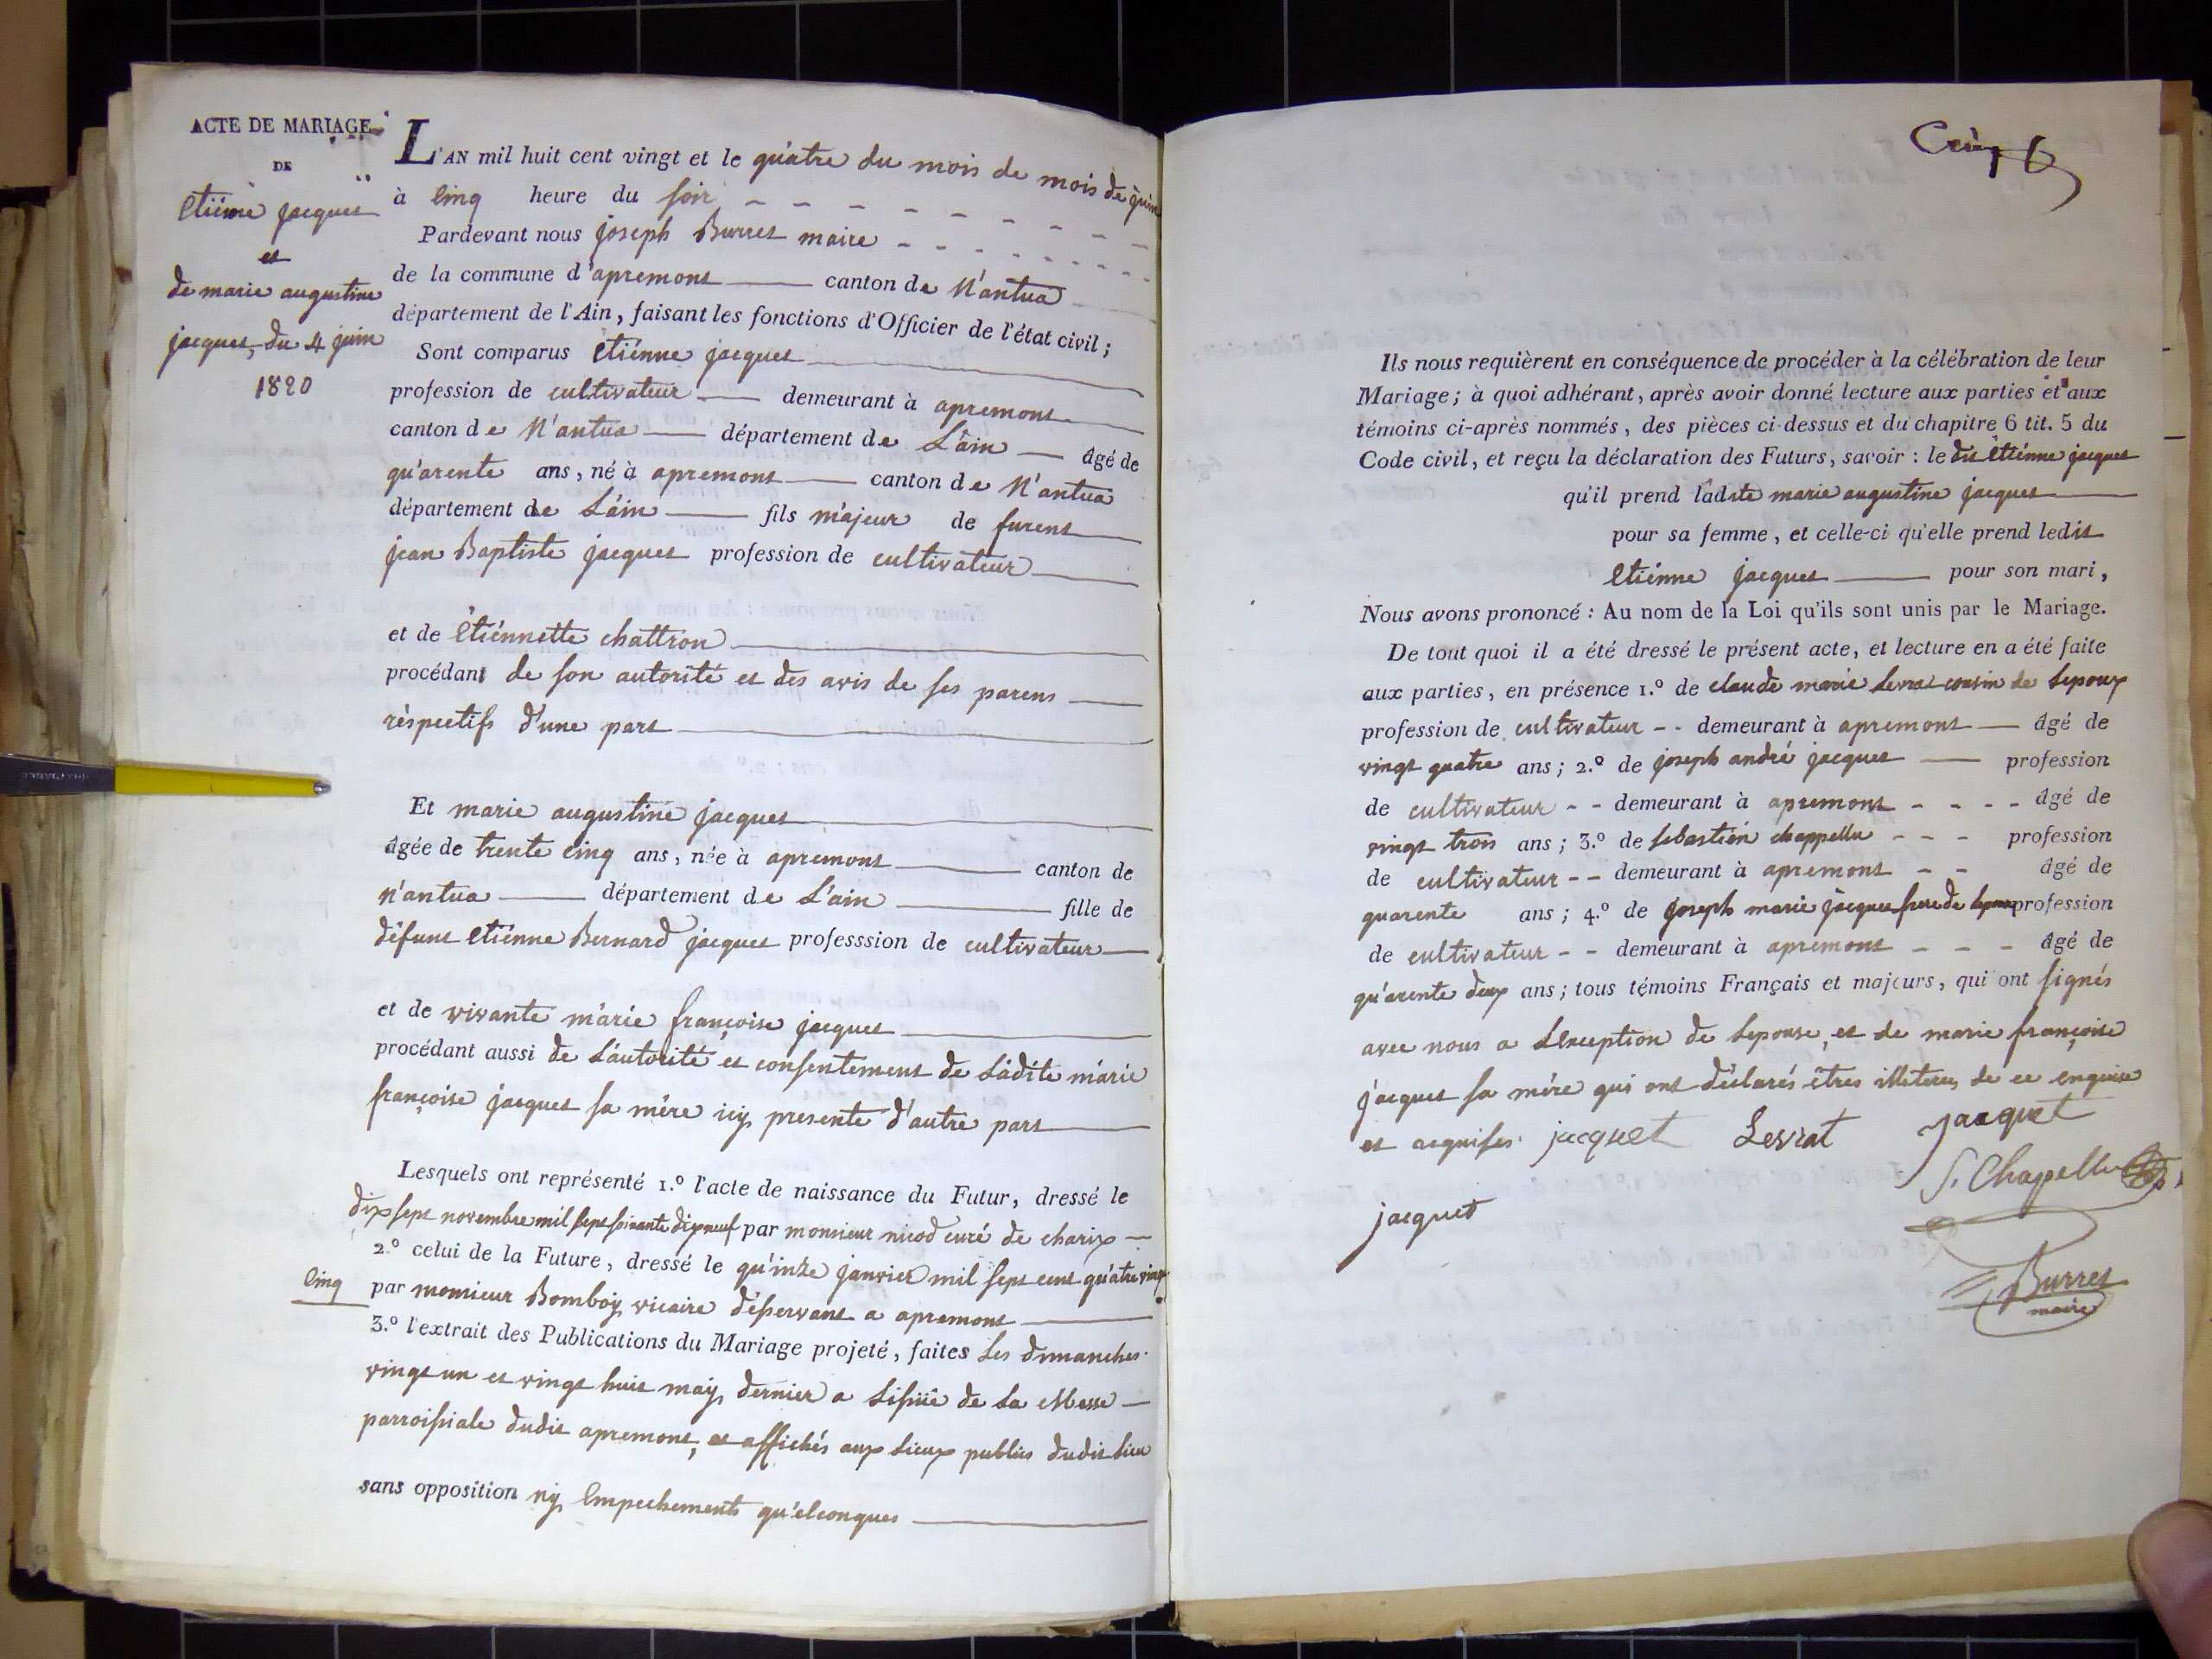 ACTE DE MARIAGE
DE
etiénne jacquet
et
de marie augustine
jacquet, du 4 juin
1820
L'AN mil huit cent vingt et le quatre du mois de mois de juin
à cinq heure du soir
Pardevant nous joseph Burret maire
de la commune d'apremont canton de N'antua
département de l'Ain, faisant les fonctions d'Officier de l'état civil;
Sont comparus etiénne jacquet
profession de cultivateur demeurant à apremont
canton de N'antua département de L'ain âgé de
qu'arente ans, né à apremont canton de N'antua
département de L'ain fils majeur de furent
jean Baptiste jacquet profession de cultivateur
et de etiénnette chattron
procédant de son autorité et des avis de ses parens
réspectifs d'une part
Et marie augustine jacquet
âgée de trente cinq ans, née à apremont canton de
n'antua département de L'ain fille de
défunt etiénne Bernard jacquet professsion de cultivateur
et de vivante marie françoise jacquet
procédant aussi de L'autorité et consentement de Ladite marie
françoise jacquet sa mère icy presente d'autre part
Lesquels ont représenté 1.º l'acte de naissance du Futur, dressé le
dix sept novembre mil sept soixante dix neuf par monsieur nicod curé de charix
2.º celui de la Future, dressé le qu'inze janvier mil sept cent qu'atre vingt
cinq
par monsieur Bomboy vicaire déservant a apremont
3.º l'extrait des Publications du Mariage projeté, faites Les dimanches
vingt un et vingt huit may dernier a Lissüe de La Messe
parroissiale dudit apremont, et affichés aux Lieux publics dudit Lieu
sans opposition ny empechements qu'elconques
Ils nous requièrent en conséquence de procéder à la célébration de leur
Mariage; à quoi adhérant, après avoir donné lecture aux parties et aux
témoins ci-après nommés, des pièces ci-dessus et du chapitre 6 tit. 5 du
Code civil, et reçu la déclaration des Futurs, savoir : le dit etiénne jacquet
qu'il prend ladite marie augustine jacquet
pour sa femme, et celle-ci qu'elle prend ledit
etiénne jacquet pour son mari,
Nous avons prononcé : Au nom de la Loi qu'ils sont unis par le Mariage.
De tout quoi il a été dressé le présent acte, et lecture en a été faite
aux parties, en présence 1.º de claude marie Levrat cousin de Lepoux
profession de cultivateur demeurant à apremont âgé de
vingt quatre ans; 2.º de joseph andré jacquet profession
de cultivateur demeurant à apremont âgé de
vingt trois ans; 3.º de sebastién chappellu profession
de cultivateur demeurant à apremont âgé de
quarente ans; 4.º de joseph marie jacquet frere de profession
de cultivateur demeurant à apremont âgé de
qu'arente deux ans; tous témoins Français et majeurs, qui ont signés
avec nous a Lexception de Lepouse, et de marie françoise
jacquet sa mére qui ont déclarés êtres illiteres de ce enquise
et acquises. jacquet Levrat Jacquet
S. Chapellu
jacquet
Burret
maire